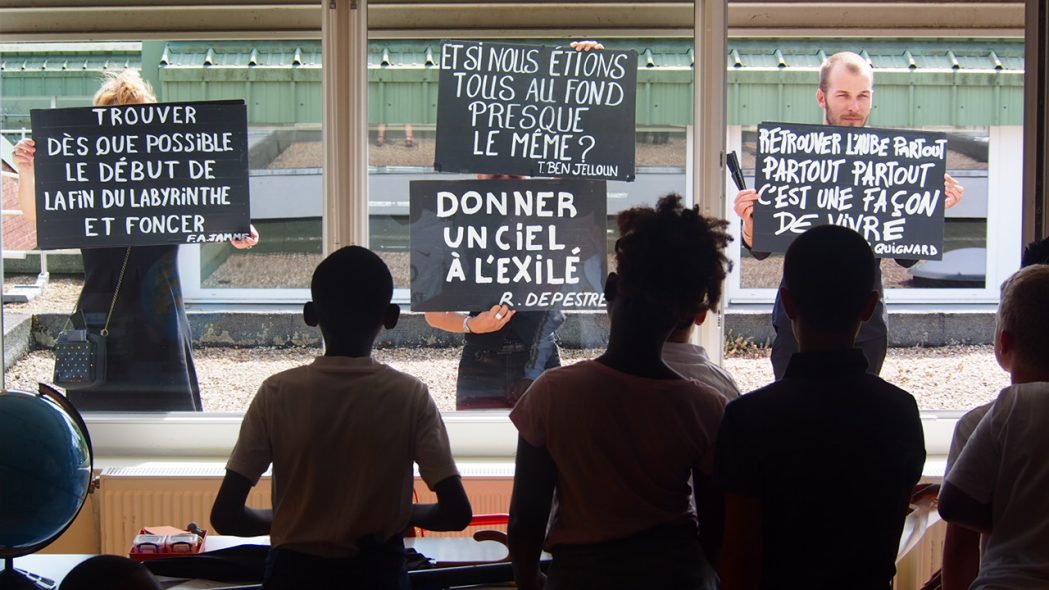 TROUVER
DÈS QUE POSSiBLE
LE DÉBUT DE
LA FIN DU LABYRINTHE
ET FONCER
F.A.JAMME
ET SI NOUS ÉTIONS
TOUS AU FOND
PRESQUE
LE MÊME ?
T. BEN JELLOUN
DONNER
UN CiEL
À L'EXILÉ
R. DEPESTRE
RETROUVER L'AUBE PARTOUT
PARTOUT PARTOUT
C'EST UNE FAÇON
DE VIVRE
QUIGNARD